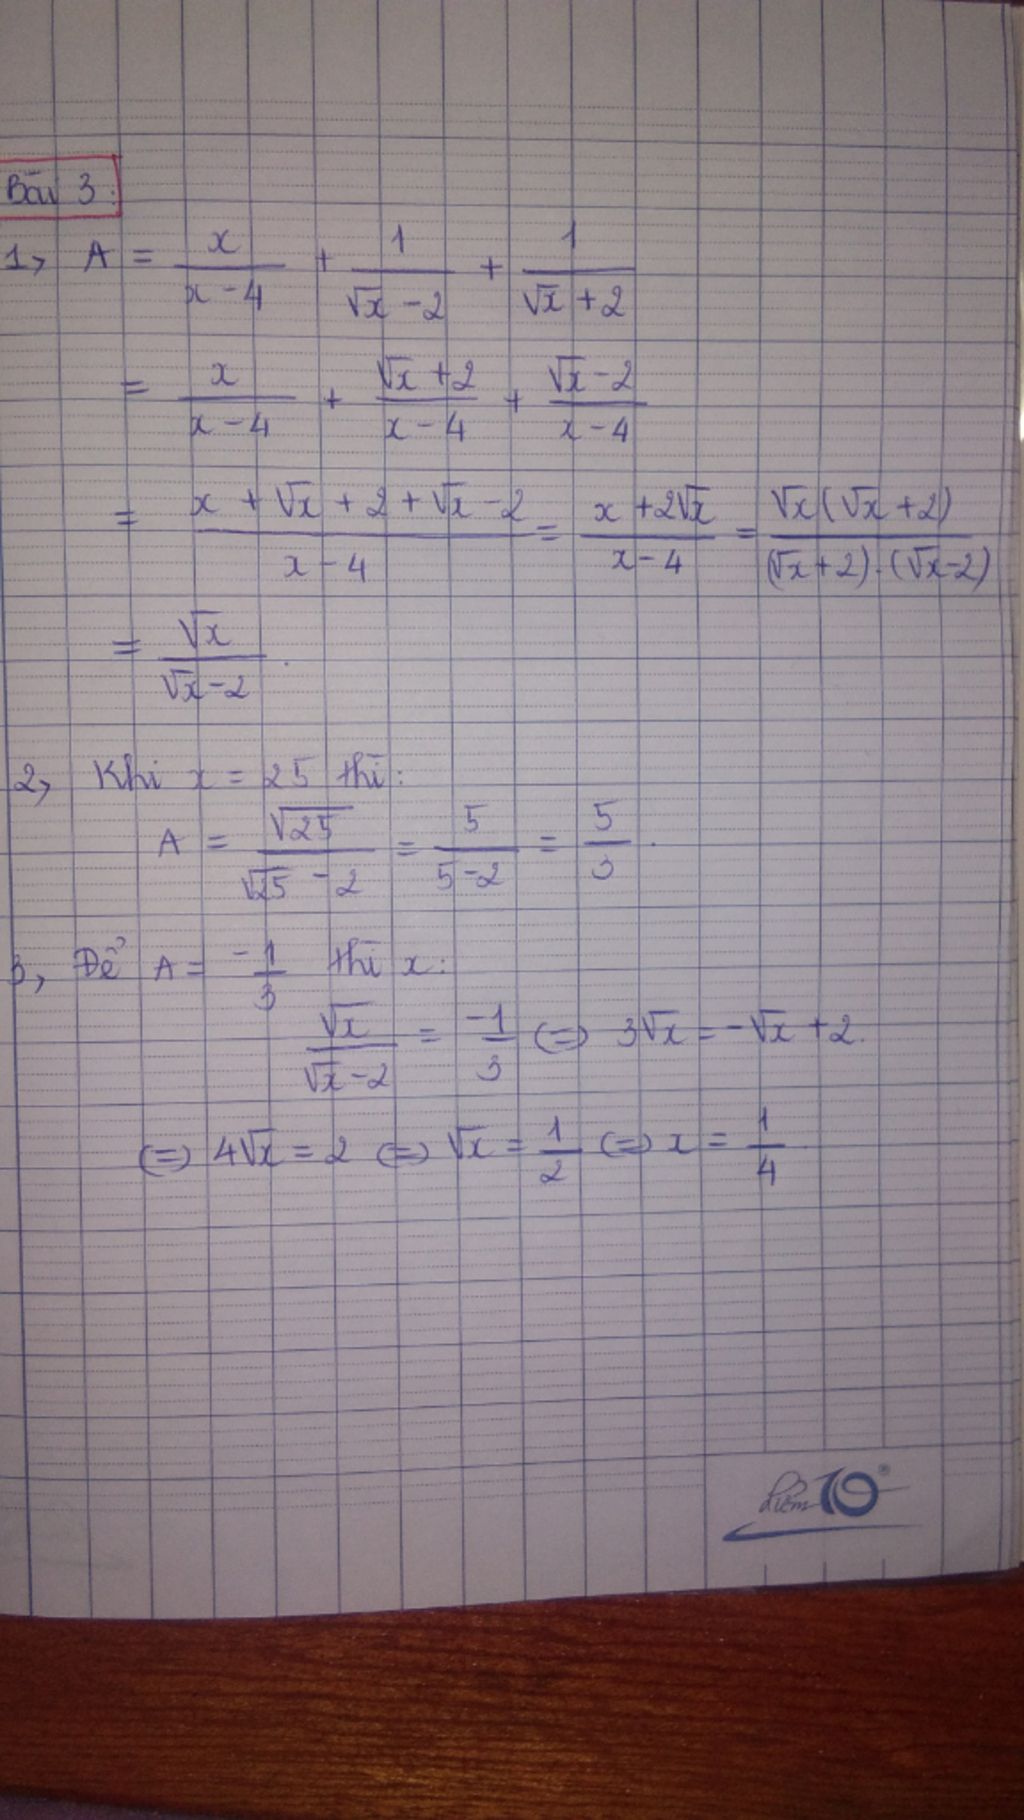 Bài 3:
1, A = x/(x-4) + 1/(√x-2) + 1/(√x+2)
= x/(x-4) + (√x+2)/(x-4) + (√x-2)/(x-4)
= (x+√x+2+√x-2)/(x-4) = (x+2√x)/(x-4) = √x(√x+2)/((√x+2).(√x-2))
= √x/(√x-2).
2, Khi x = 25 thì:
A = √25/(√25-2) = 5/(5-2) = 5/3.
3, Để A = -1/3 thì x:
√x/(√x-2) = -1/3 (=) 3√x = -√x+2.
(=) 4√x = 2 (=) √x = 1/2 (=) x = 1/4
điểm 10®